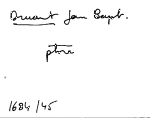 Druart Jan Bapt.
ptr
1684/45